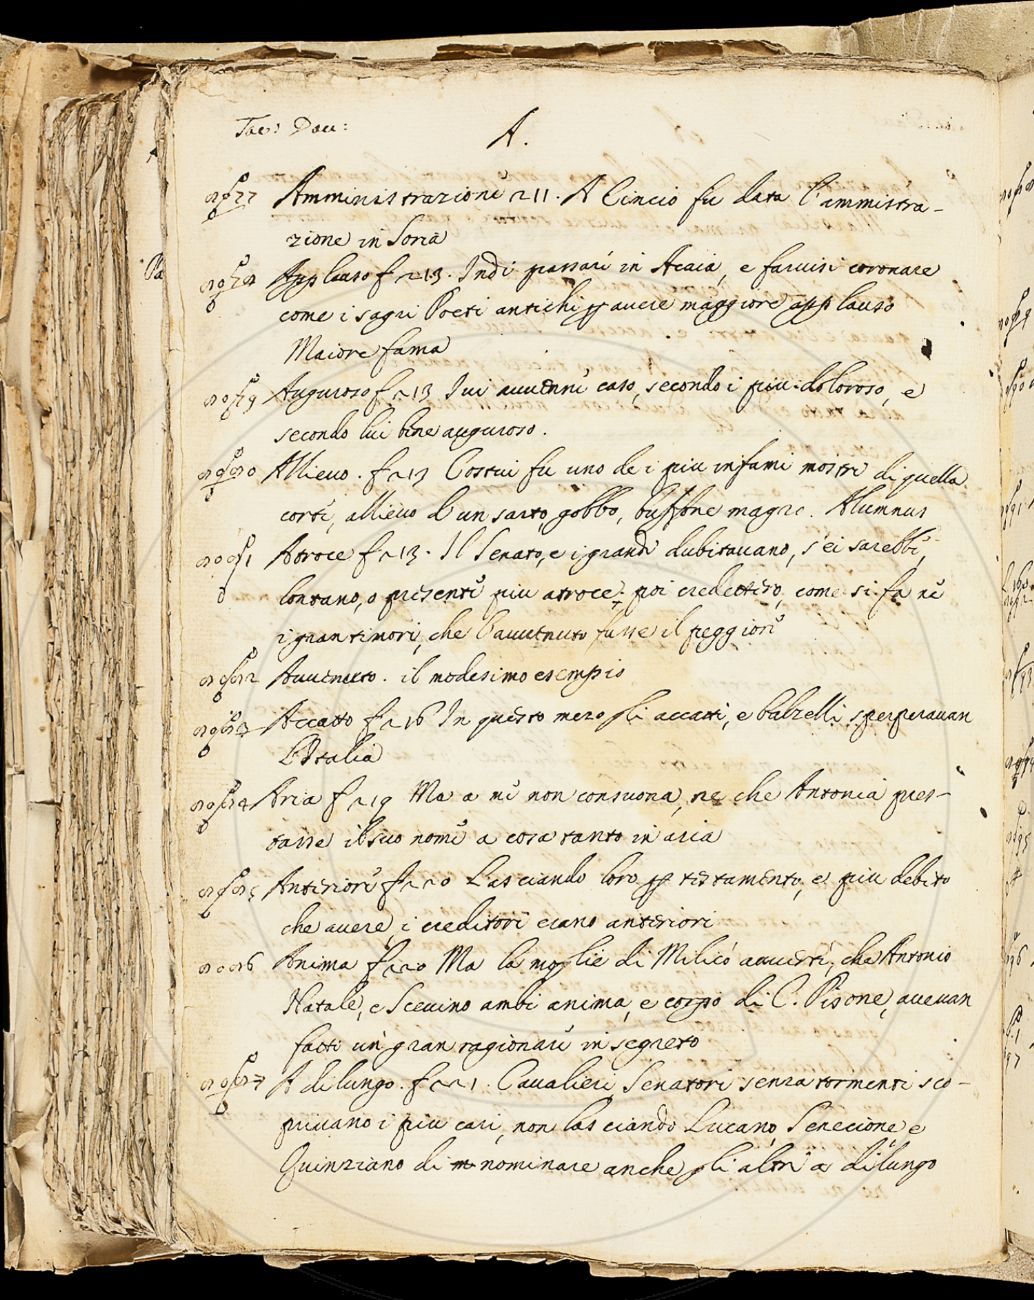 A.
Amministrazione 211. A Cincio fu data l'ammistra-
zione in Soria
Applauso f 213. Indi passare in Acaia, e farvisi coronare
come i sagri Poeti antichi avere maggiore applauso
Maiore fama
Auguroso f 213 Ivi avvenne caso, secondo i piu doloroso, e
secondo lui bene auguroso.
Allievo. f 213 Costui fu uno de i piu infami mostri di quella
corte, allievo d un sarto, gobbo, buffone magro. Alumnus
Atroce f 213. Il Senato, e i grandi dubitavano, s'ei sarebbe,
lontano, o presente piu atroce; poi credettero, come si fa ne
i gran timori, che l'avvenuto fusse il peggiore
Avvenuto. il modesimo esempio
Accatto f 216 In questo mezo gli accatti, e balzelli sperperavan
l'Italia
Aria f 219 Ma a me non consuona, ne che Antonia pres-
tasse il suo nome a cosa tanto in aria
Anteriore f 220 Lasciando loro testamento, e piu debito
che avere, i creditori erano anteriori
Anima f 220 Ma la moglie di Milico avverti, che Antonio
Natale, e Scevino ambi anima, e corpo di C. Pisone, avevan
fatti un gran ragionare in segreto
A di lungo. f 221. Cavalieri Senatori senza tormenti sco-
privano i piu cari, non lasciando Lucano, Senecione e
Quinziano di nominare anche gli altri a di lungo